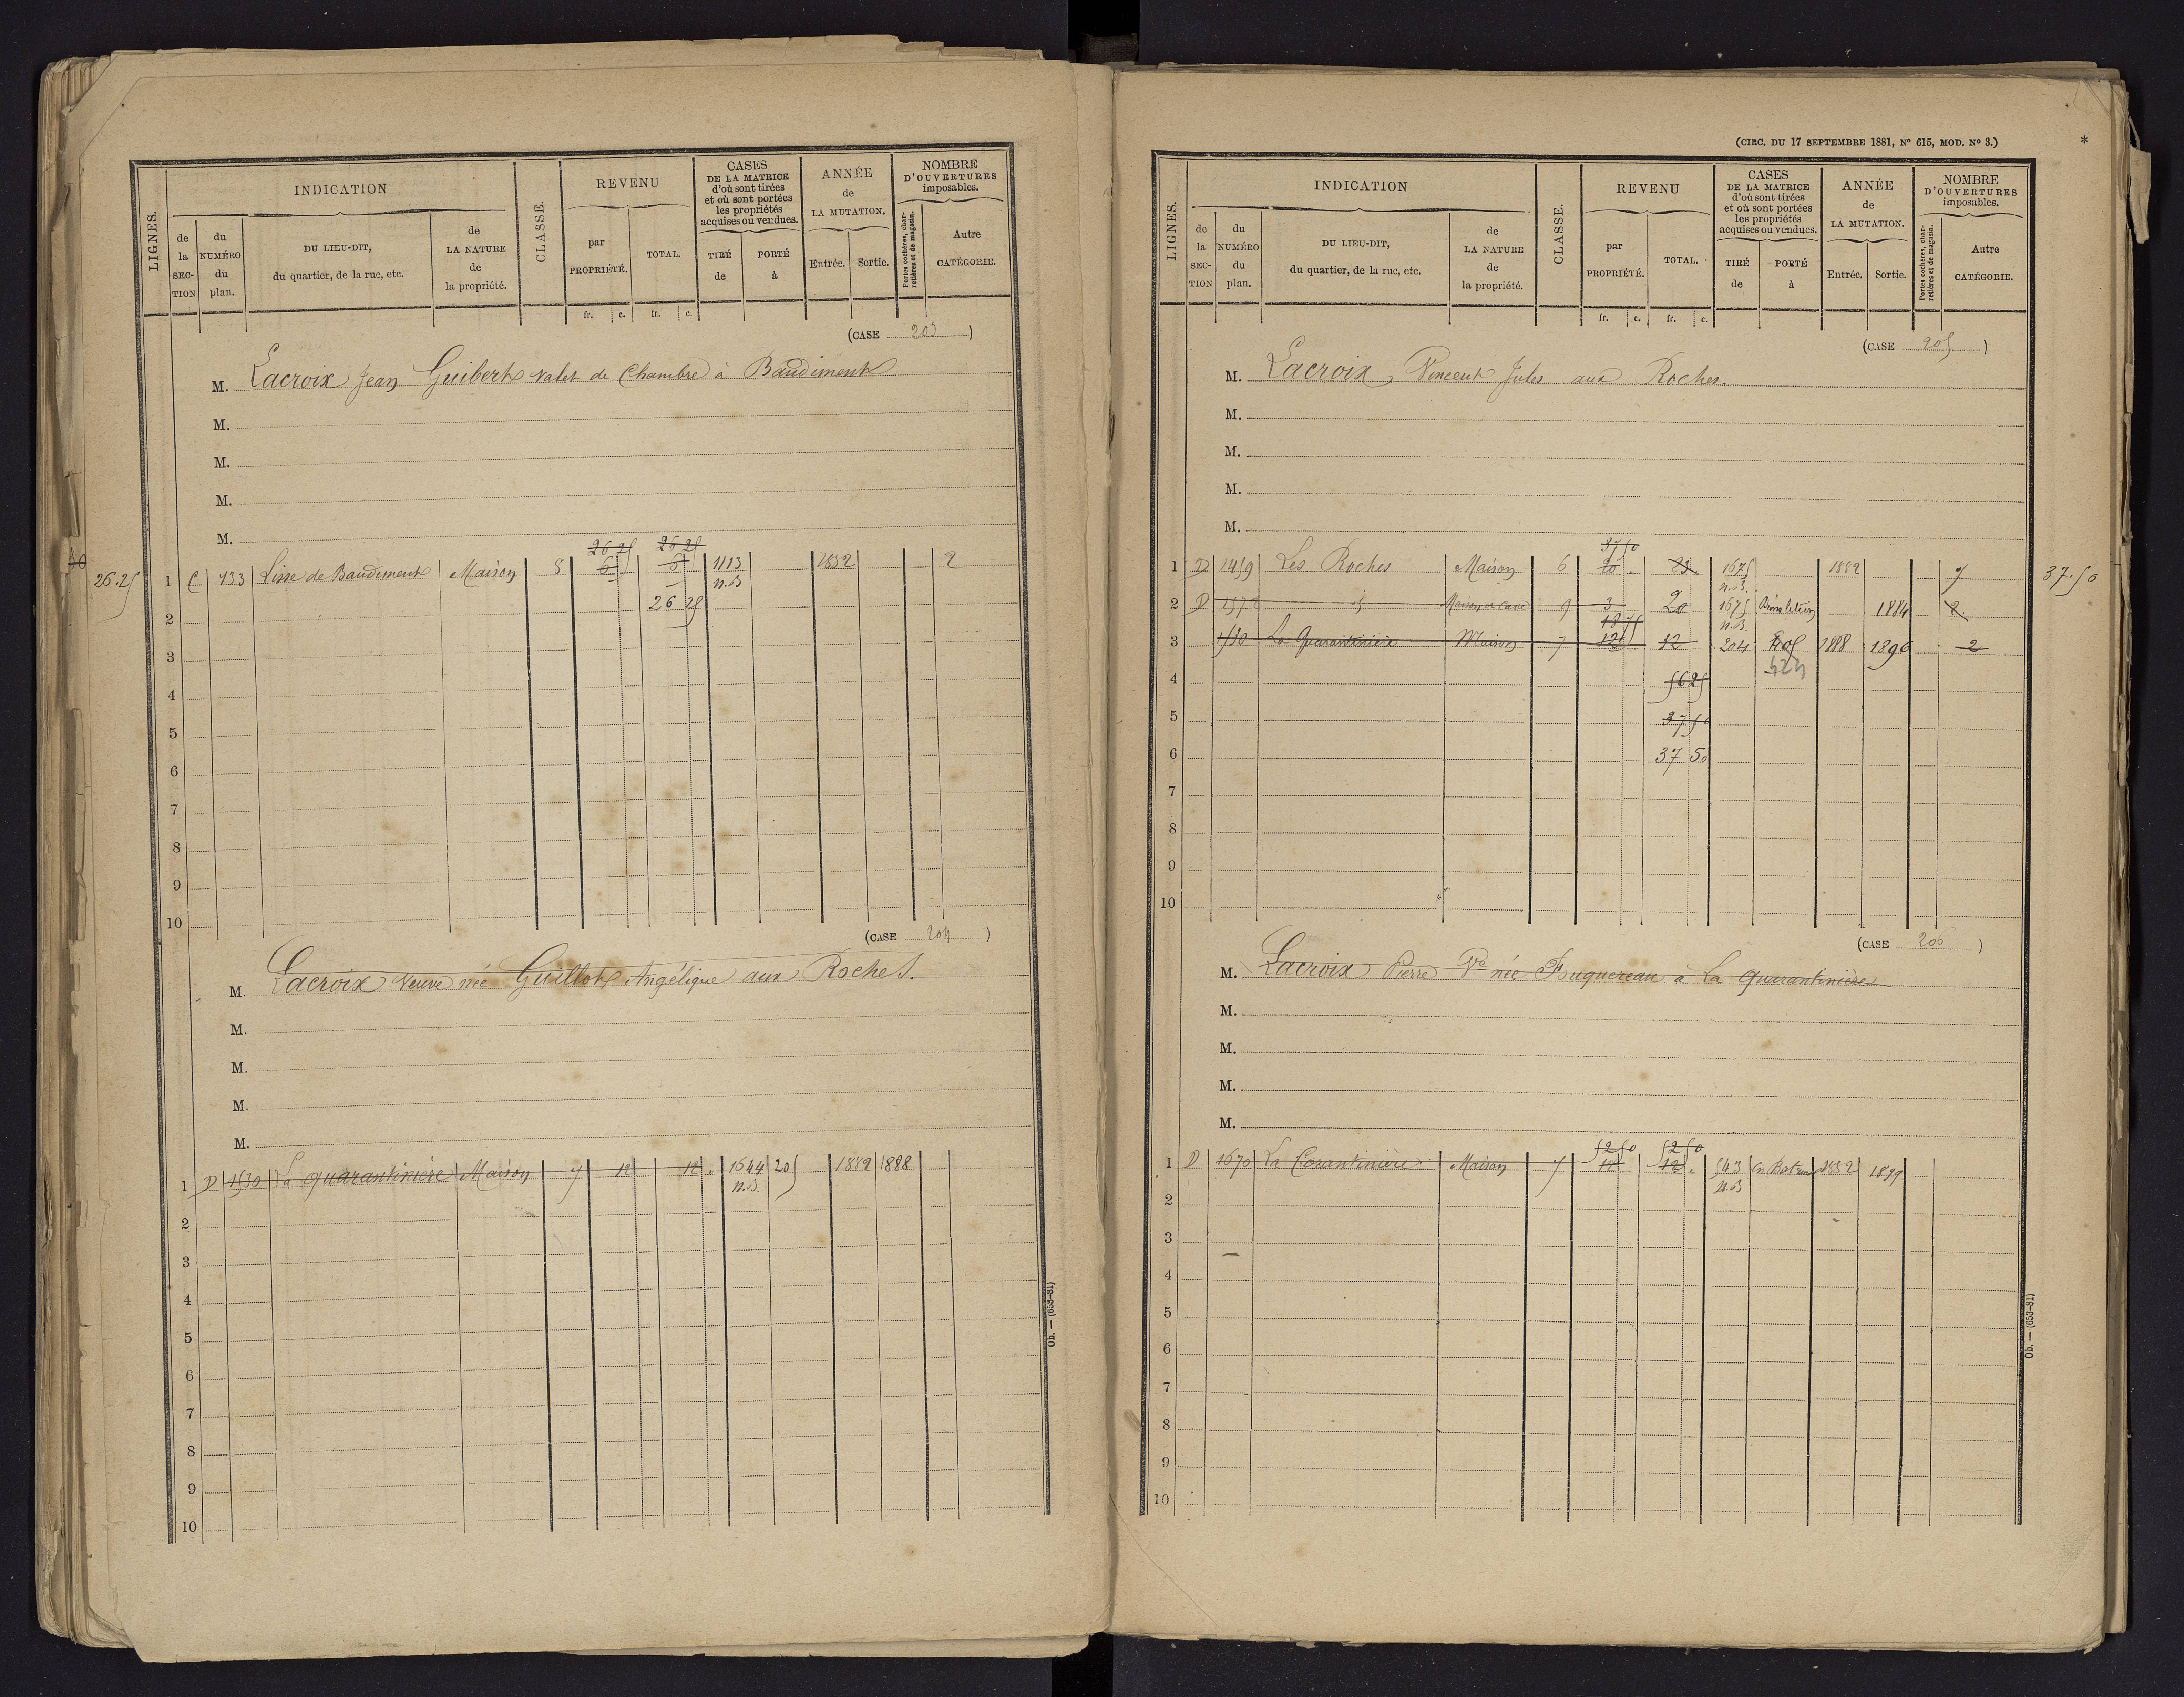 LIGNES.
INDICATION
de la SECTION
du NUMÉRO du plan.
DU LIEU-DIT, du quartier, de la rue, etc.
de LA NATURE de la propriété.
CLASSE.
REVENU
par PROPRIÉTÉ.
TOTAL.
CASES DE LA MATRICE d'où sont tirées et où sont portées les propriétés acquises ou vendues.
TIRÉ de
PORTÉ à
ANNÉE de LA MUTATION.
Entrée.
Sortie.
NOMBRE D'OUVERTURES imposables.
Portes cochères, charretières et de magasin.
Autre CATÉGORIE.
fr. c. fr. c.
(CASE 203)
M. Lacroix Jean Guibert valet de Chambre à Baudiment
M.
M.
M.
M.
26 25 26 25
26.25 1 C 133 Lisse de Baudiment Maison 8 6 6 1113 1882 2
n.B
2 26 25
3
4
5
6
7
8
9
10
(CASE 204)
M. Lacroix Veuve née Guillot Angélique aux Roches.
M.
M.
M.
M.
1 D 1530 La quarantinière Maison 7 12 12 1644 205 1882 1888
n.B.
2
3
4
5
6
7
8
9
10
Ob. — (653-81)
(CIRC. DU 17 SEPTEMBRE 1881, N° 615, MOD. N° 3.) *
LIGNES.
INDICATION
de la SECTION
du NUMÉRO du plan.
DU LIEU-DIT, du quartier, de la rue, etc.
de LA NATURE de la propriété.
CLASSE.
REVENU
par PROPRIÉTÉ.
TOTAL.
CASES DE LA MATRICE d'où sont tirées et où sont portées les propriétés acquises ou vendues.
TIRÉ de
PORTÉ à
ANNÉE de LA MUTATION.
Entrée.
Sortie.
NOMBRE D'OUVERTURES imposables.
Portes cochères, charretières et de magasin.
Autre CATÉGORIE.
fr. c. fr. c.
(CASE 205)
M. Lacroix, Vincent Jules aux Roches.
M.
M.
M.
M.
37 50
1 D 1459 Les Roches Maison 6 20 23 1675 1882 37.50
n.B.
2 D Maison et Cave 9 3 20 1675 1884 2
18 75 n.B.
3 1530 La Quarantinière Maison 7 12 12 204 1888 1896 2
4 56 25
5 37 50
6 37 50
7
8
9
10
(CASE 206)
M. Lacroix Pierre Ve née Fuquereau à La Quarantinière
M.
M.
M.
M.
52 50 52 50
1 D 1670 La Carantinière Maison 7 12 12 543 1882 1899
n.B
2
3
4
5
6
7
8
9
10
Ob. — (653-81)